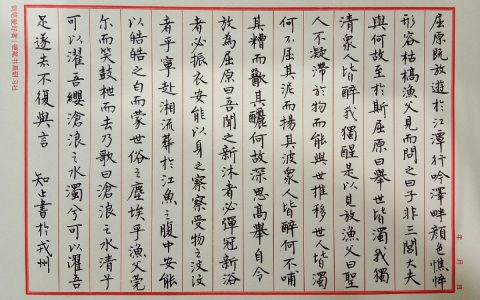 年 月 日
屈原既放遊於江潭行吟澤畔顔色憔悴
形容枯槁漁父見而問之曰子非三閭大夫
與何故至於斯屈原曰舉世皆濁我獨
清眾人皆醉我獨醒是以見放漁父曰聖
人不凝滯於物而能與世推移世人皆濁
何不屈其泥而揚其波眾人皆醉何不哺
其糟而歠其釃何故深思高舉自令
放為屈原曰吾聞之新沐者必彈冠新浴
者必振衣安能以身之察察受物之汶汶
者乎寧赴湘流葬於江魚之腹中安能
以皓皓之白而蒙世俗之塵埃乎漁父莞
尔而笑鼓枻而去乃歌曰滄浪之水清兮
可以濯吾纓滄浪之水濁兮可以濯吾
足遂去不復與言 知上書於戎州